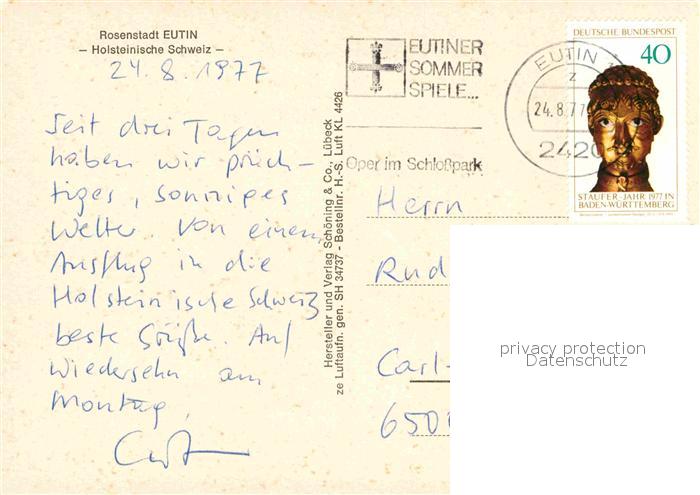 Rosenstadt EUTIN
– Holsteinische Schweiz –
24.8.1977
Seit drei Tagen
haben wir präch-
tiges, sonniges
Wetter. Von einem
Ausflug in die
Holsteinische Schweiz
beste Grüße. Auf
Wiedersehn am
Montag,
Hersteller und Verlag Schöning & Co., Lübeck
ze Luftaufn. gen. SH 34737 - Bestellnr. H.-S. Luft KL 4426
EUTINER
SOMMER
SPIELE...
Oper im Schloßpark
EUTIN 1
z
24.8.77
2420
DEUTSCHE BUNDESPOST
40
STAUFER-JAHR 1977 IN
BADEN-WÜRTTEMBERG
Herrn
Rud
Carl-
650
privacy protection
Datenschutz